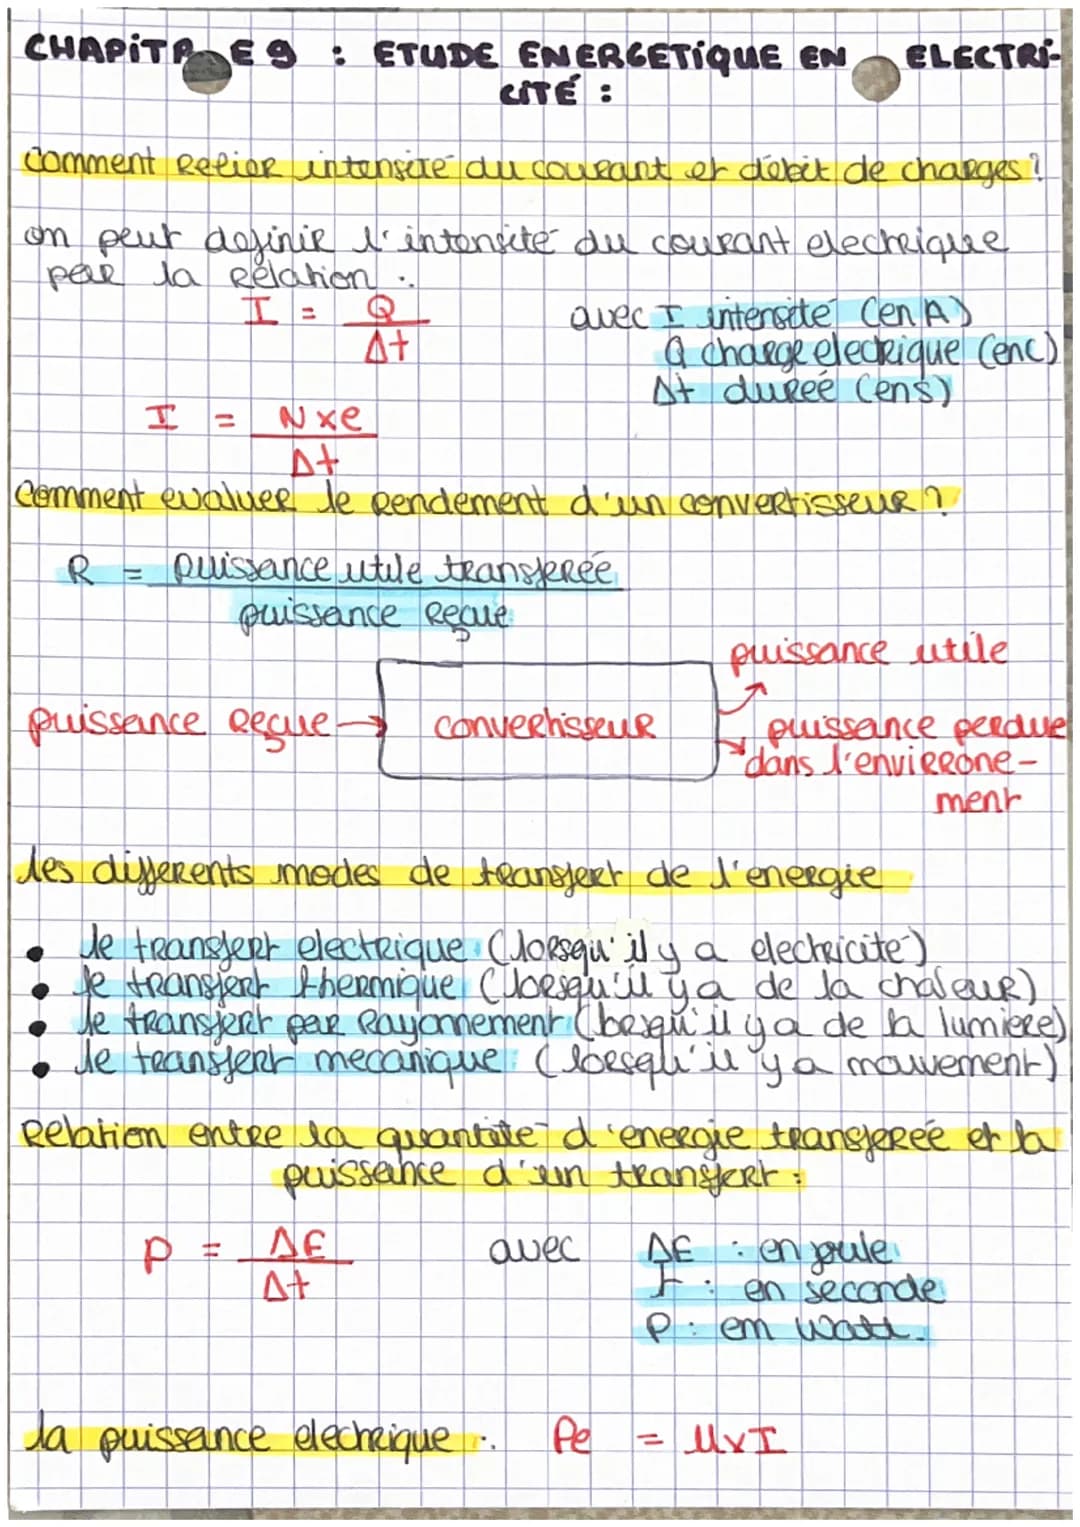 CHAPITRE 9 : ETUDE ENERGETIQUE EN ELECTRI-
CITÉ :
comment relier intensité du courant et débit de charges ?
on peut definir l'intensité du courant electrique
par la relation :
I = Q / Δt
avec I intensité (en A)
Q charge electrique (en C)
Δt dureé (en s)
I = N x e / Δt
comment evaluer le rendement d'un convertisseur ?
R = puissance utile transfereé / puissance reçue
puissance utile
puissance reçue → convertisseur
puissance perdue
dans l'envirrone-
ment
les differents modes de transfert de l'energie
• le transfert electrique (lorsqu'il y a electricité)
• le transfert thermique (lorsqu'il y a de la chaleur)
• le transfert par rayonnement (lorsqu'il y a de la lumiere)
• le transfert mecanique : (lorsqu'il y a mouvement)
Relation entre la quantité d'energie transfereé et la
puissance d'un transfert :
P = ΔE / Δt
avec ΔE : en joule
t : en seconde
P : en watt.
la puissance electrique : Pe = U x I